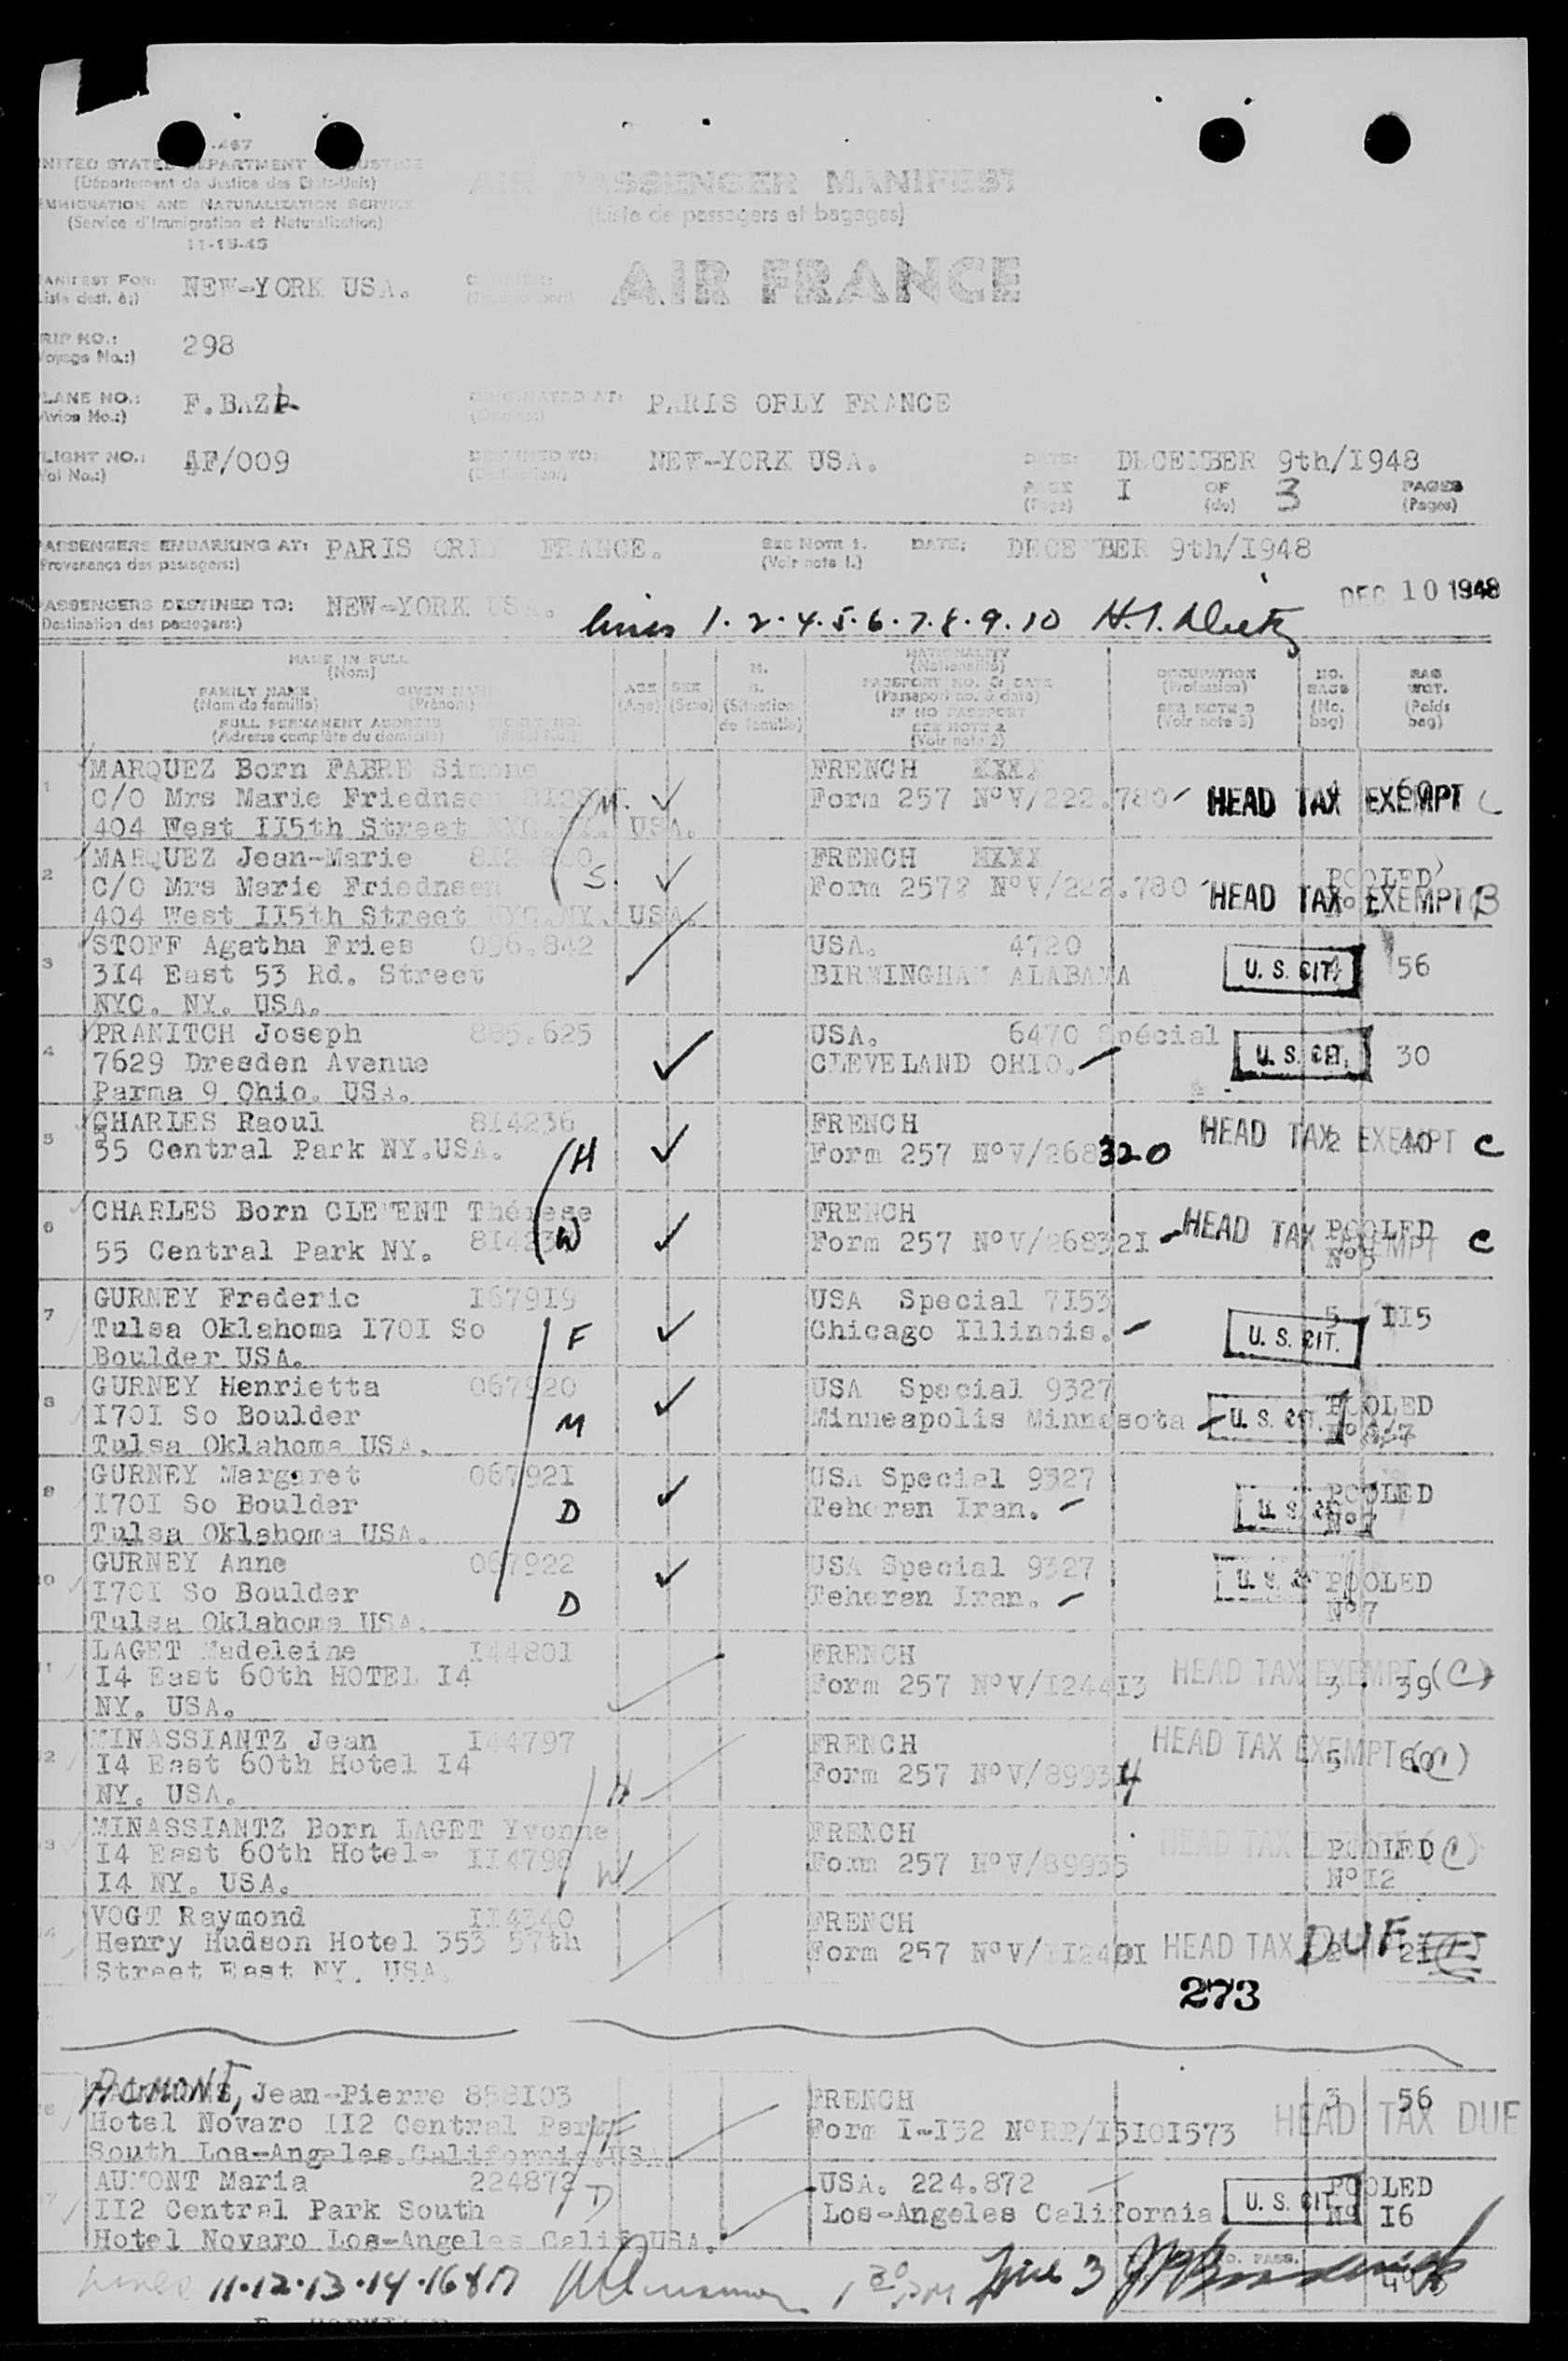 .467
NITED STATES DEPARTMENT JUSTICE
(Département de Justice des Etats-Unis)
MMIGRATION AND NATURALIZATION SERVICE
(Service d'Immigration et Naturalisation)
11-15-45
AIR PASSENGER MANIFEST
(Liste de passagers et bagages)
ANIFEST FOR: NEW-YORK USA.
iste dest. à:)
AIR FRANCE
RIP NO.: 298
Voyage No.:)
LANE NO.: F.BAZ
Avion No.:)
ORIGINATED AT: PARIS ORLY FRANCE
LIGHT NO.: AF/009
Vol No.:)
DESTINED TO: NEW-YORK USA.
(Destination:)
DATE: DECEMBER 9th/I948
PAGE I OF 3 PAGES
(Page) (de) (Pages)
ASSENGERS EMBARKING AT: PARIS ORLY FRANCE. SEE NOTE 1. DATE: DECEMBER 9th/I948
Provenance des passagers:) (Voir note 1.)
ASSENGERS DESTINED TO: NEW-YORK USA.
Destination des passagers:)
DEC 10 1948
lines 1.2.4.5.6.7.8.9.10
NAME IN FULL
(Nom)
FAMILY NAME GIVEN NAME
(Nom de famille) (Prénom)
FULL PERMANENT ADDRESS
(Adresse complète du domicile)
AGE SEX M.
(Age) (Sexe) S.
(Situation
de famille)
NATIONALITY
(Nationalité)
PASSPORT NO. & DATE
(Passeport no. & date)
IF NO PASSPORT
SEE NOTE 2
(Voir note 2)
OCCUPATION
(Profession)
SEE NOTE 3
(Voir note 3)
NO.
BAGS
(No.
bag)
BAG
WGT.
(Poids
bag)
1 MARQUEZ Born FABRE Simone FRENCH XXXX
C/O Mrs Marie Friednsen M. Form 257 NºV/222.780 HEAD TAX EXEMPT C
404 West II5th Street NYC.NY. USA.
2 MARQUEZ Jean-Marie FRENCH XXXX POOLED
C/O Mrs Marie Friednsen S. Form 257 NºV/222.780 HEAD TAX EXEMPT B
404 West II5th Street NYC.NY. USA.
3 STOFF Agatha Fries 096.842 USA. 4720
3I4 East 53 Rd. Street BIRMINGHAM ALABAMA U. S. CIT. 56
NYC. NY. USA.
4 PRANITCH Joseph 885.625 USA. 6470 Spécial
7629 Dresden Avenue CLEVELAND OHIO. U. S. CIT. 30
Parma 9 Ohio. USA.
5 CHARLES Raoul 8I4236 FRENCH HEAD TAX EXEMPT 2 40 C
55 Central Park NY.USA. H Form 257 NºV/268320
6 CHARLES Born CLEMENT Thérèse FRENCH HEAD TAX EXEMPT POOLED C
55 Central Park NY. W Form 257 NºV/26832I Nº5
7 GURNEY Frederic I679I9 USA Special 7I53 5 II5
Tulsa Oklahoma I70I So F Chicago Illinois. U. S. CIT.
Boulder USA.
8 GURNEY Henrietta 067920 USA Special 9327 POOLED
I70I So Boulder M Minneapolis Minnesota U. S. CIT. Nº 7
Tulsa Oklahoma USA.
9 GURNEY Margaret 06792I USA Special 9327 POOLED
I70I So Boulder D Teheran Iran. U. S. Nº7
Tulsa Oklahoma USA.
0 GURNEY Anne 067922 USA Special 9327 U. S. POOLED
I70I So Boulder D Teheran Iran. Nº7
Tulsa Oklahoma USA.
1 LAGET Madeleine I4480I FRENCH
I4 East 60th HOTEL I4 Form 257 NºV/I244I3 HEAD TAX EXEMPT 3 39 (C)
NY. USA.
2 MINASSIANTZ Jean I44797 FRENCH HEAD TAX EXEMPT 5 60 (C)
I4 East 60th Hotel I4 H Form 257 NºV/89934
NY. USA.
3 MINASSIANTZ Born LAGET Yvonne FRENCH HEAD TAX POOLED (C)
I4 East 60th Hotel- II4798 W Form 257 NºV/89935 Nº I2
I4 NY. USA.
4 VOGT Raymond II4340 FRENCH
Henry Hudson Hotel 353 57th Form 257 NºV/II240I HEAD TAX DUE 2 21
Street East NY. USA.
273
6 AUMONT, Jean-Pierre 858I03 FRENCH 3 56
Hotel Novaro II2 Central Park Form I-I32 NºRP/I5I0I573 HEAD TAX DUE
South Los-Angeles.California.USA
7 AUMONT Maria 224872 D USA. 224.872 POOLED
II2 Central Park South Los-Angeles California U. S. CIT. Nº I6
Hotel Novaro Los-Angeles Calif.USA.
lines 11.12.13.14.16&17 1 30 PM line 3